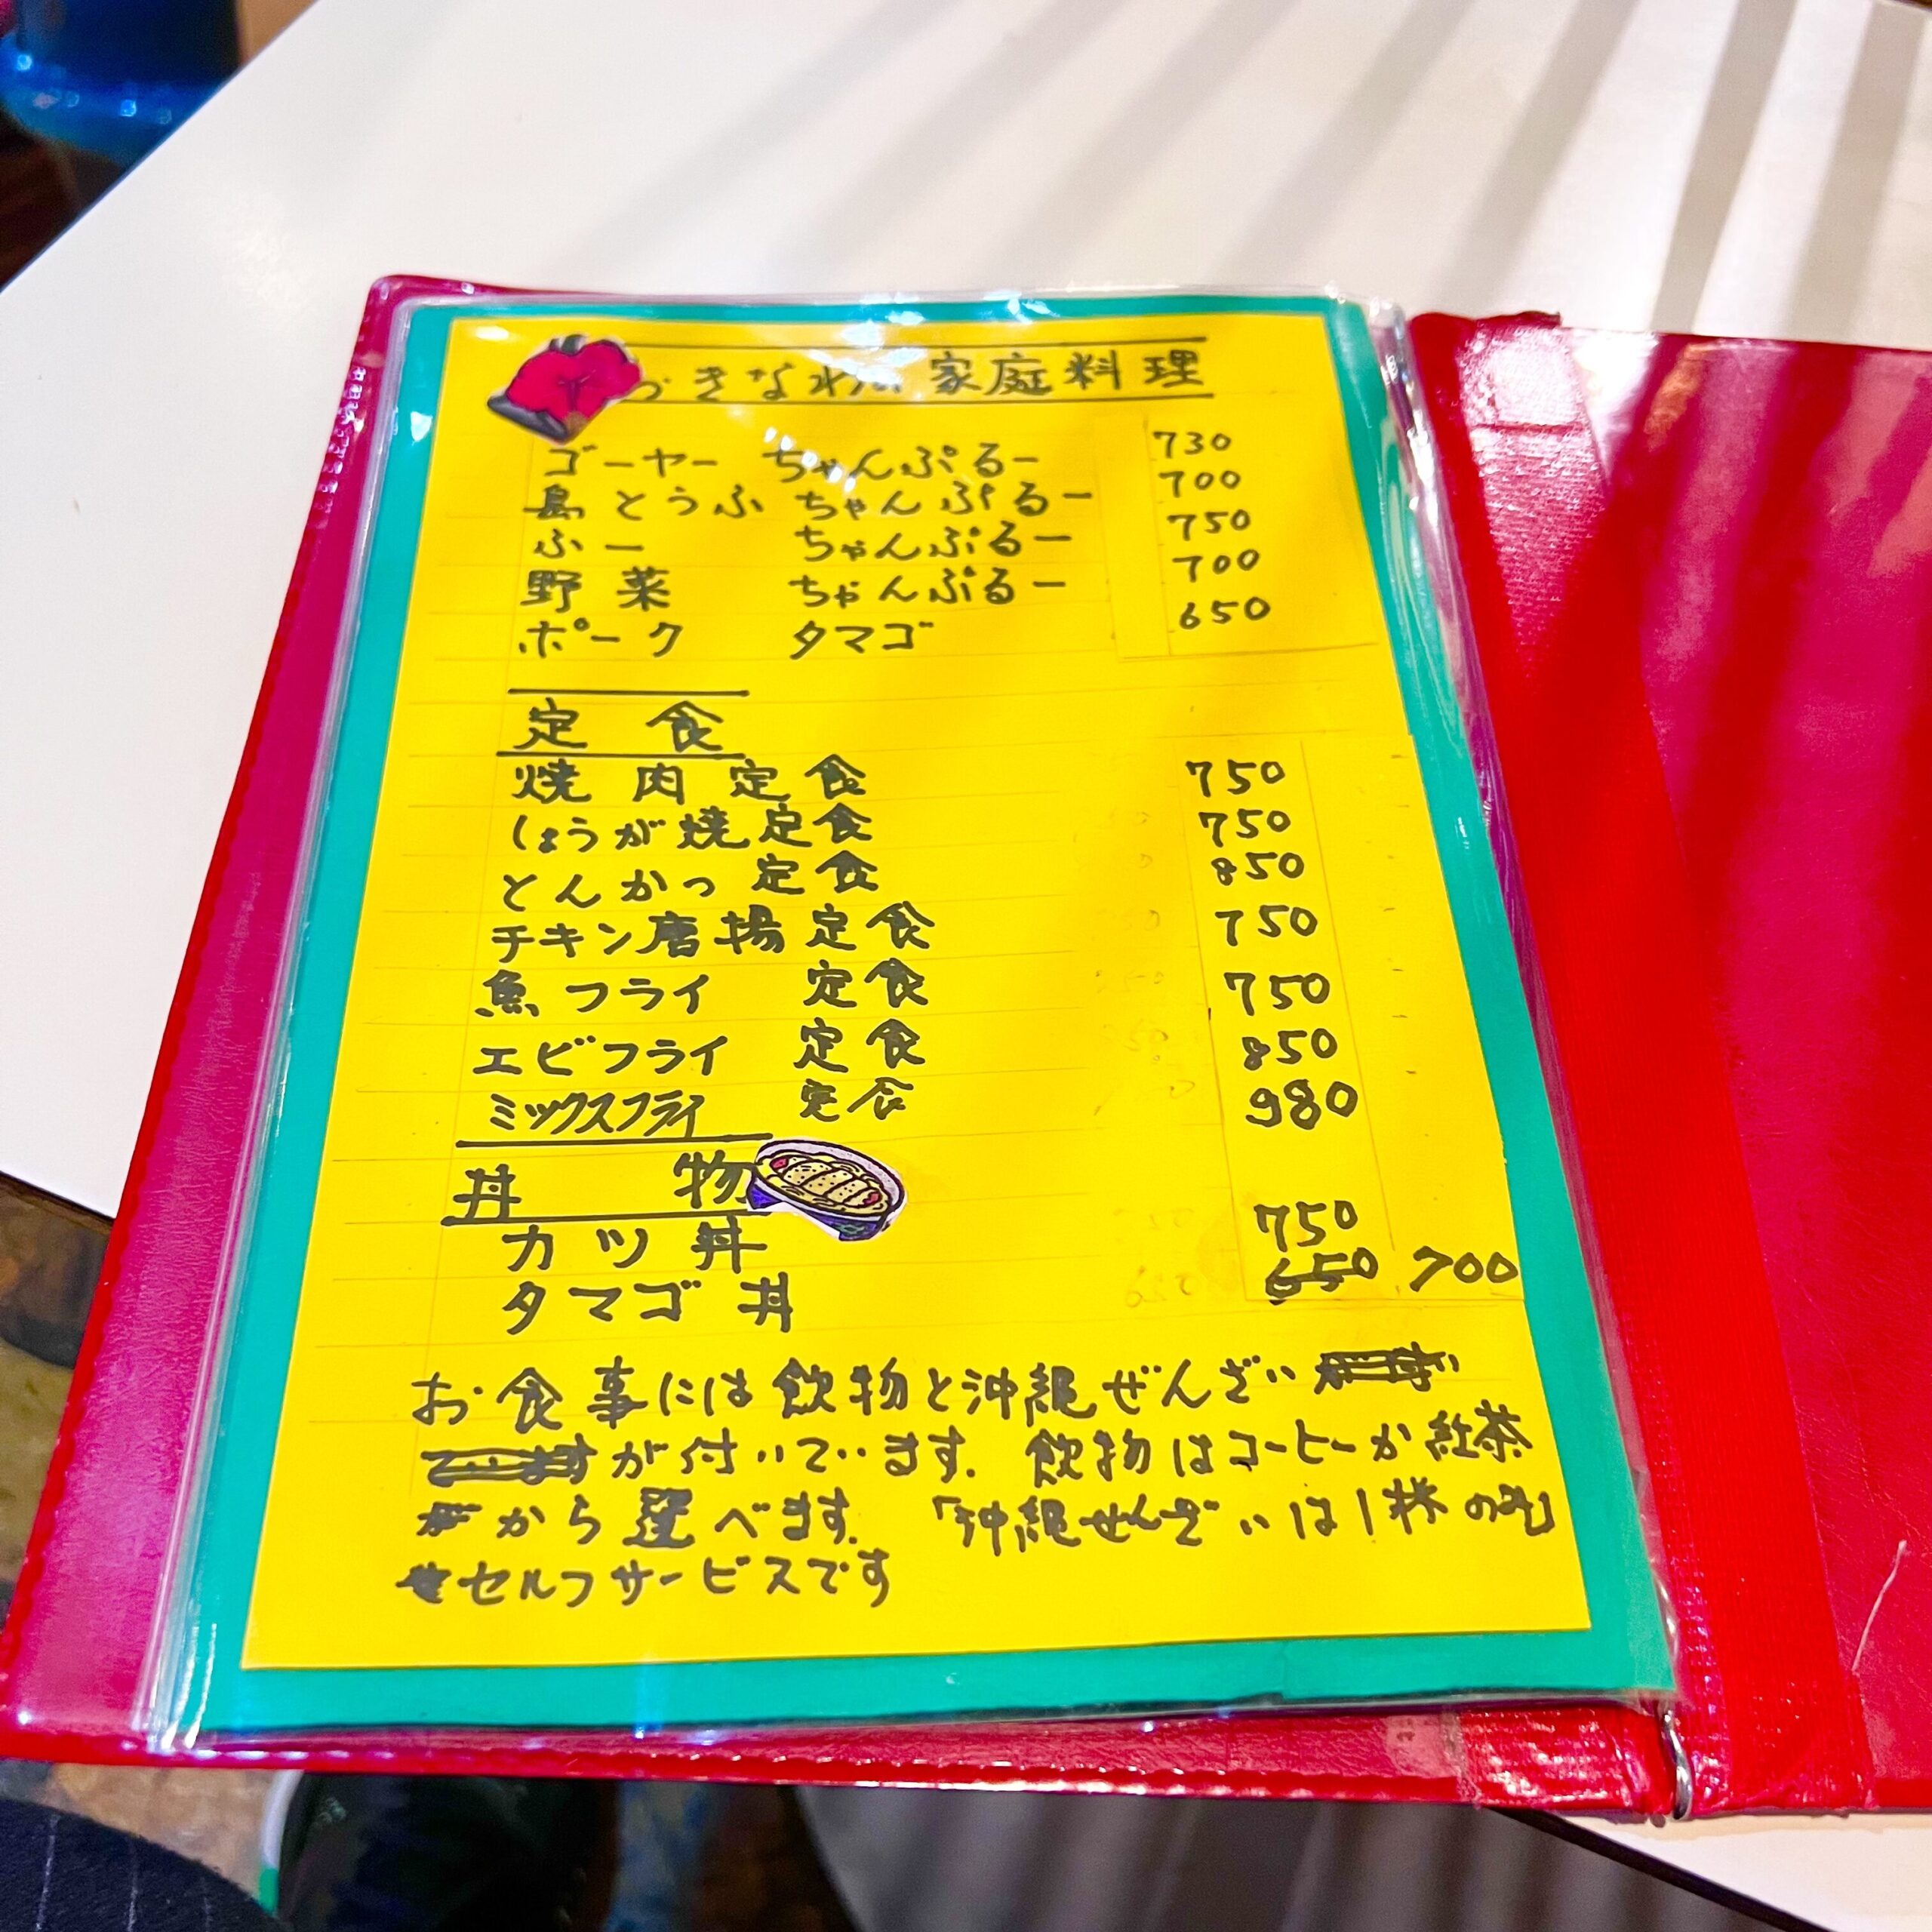 おきなわ家庭料理
ゴーヤー ちゃんぷるー 730
島とうふ ちゃんぷるー 700
ふー ちゃんぷるー 750
野菜 ちゃんぷるー 700
ポーク タマゴ 650
定食
焼肉定食 750
しょうが焼定食 750
とんかつ定食 850
チキン唐揚定食 750
魚フライ 定食 750
エビフライ 定食 850
ミックスフライ 定食 980
丼物
カツ丼 750
タマゴ丼 650 700
お食事には飲物と沖縄ぜんざい
が付いています。飲物はコーヒーか紅茶
から選べます。「沖縄ぜんざいは1杯のみ」
セルフサービスです